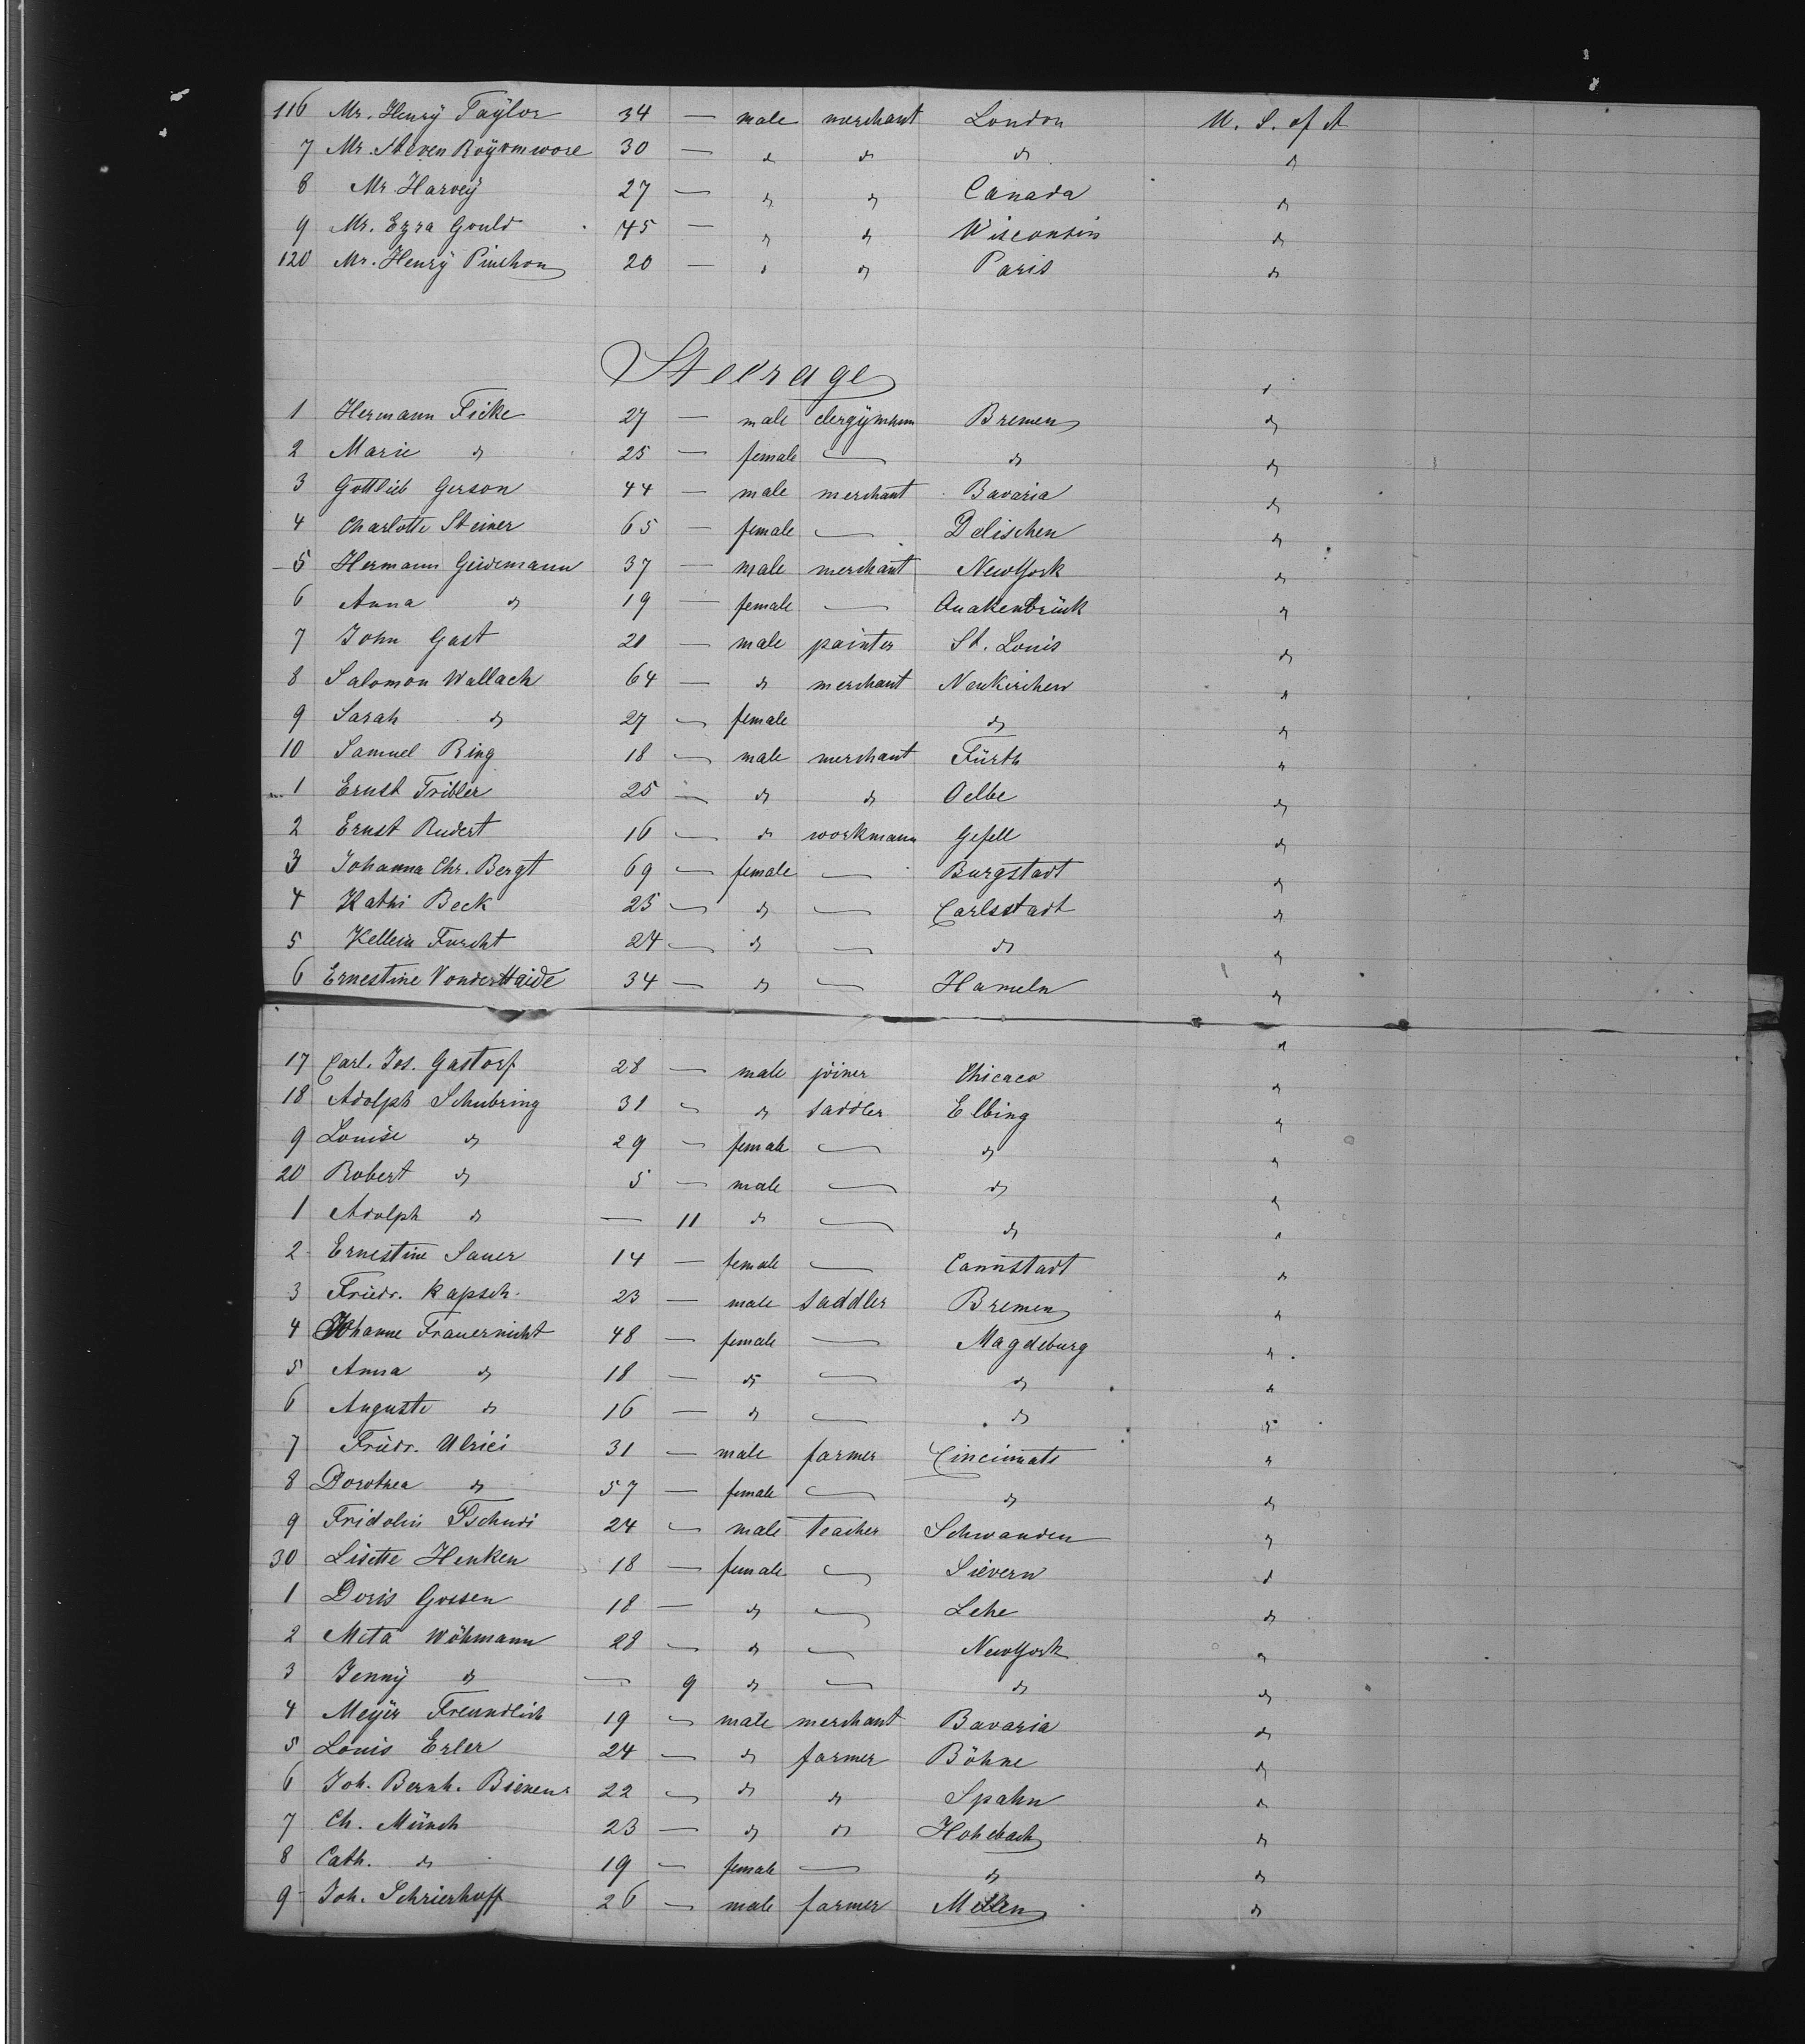 116 Mr. Henrÿ Taÿlor 34 — male merchant London U. S. of A
7 Mr. Steven Roÿomwore 30 — " " " "
8 Mr. Harveÿ 27 — " " Canada "
9 Mr. Ezra Gould 45 — " " Wisconsin "
120 Mr. Henrÿ Pinchon 20 — " " Paris "
Steerage "
1 Hermann Ficke 27 — male clergÿmann Bremen "
2 Marie " 25 — female — " "
3 Gottlieb Gerson 44 — male merchant Bavaria "
4 Charlotte Steiner 65 — female — Delischen "
5 Hermann Geidemann 37 — male merchant NewYork "
6 Anna " 19 — female — Quakenbrück "
7 John Gast 21 — male painter St. Louis "
8 Salomon Wallach 64 — " merchant Neukirchen "
9 Sarah " 27 — female " "
10 Samuel Ring 18 — male merchant Fürth "
1 Ernst Tribler 25 — " " Oelbe "
2 Ernst Rudert 16 — " workmann Gefell "
3 Johanna Chr. Bergt 69 — female — Burgstadt "
4 Kathi Beck 25 — " — Carlsstadt "
5 Kellein Furcht 24 — " — " "
6 Ernestine VonderHaide 34 — " — Hameln "
"
17 Carl. Jos. Gastorf 28 — male joiner Chicaco "
18 Adolph Schubring 31 — " saddler Elbing "
9 Louise " 29 — female — " "
20 Robert " 5 — male — " "
1 Adolph " — 11 " — " "
2 Ernestine Sauer 14 — female — Cannstadt "
3 Friedr. Kapsch. 23 — male saddler Bremen "
4 Johanne Frauernicht 48 — female — Magdeburg "
5 Anna " 18 — " — " "
6 Auguste " 16 — " — " "
7 Friedr. Ulrici 31 — male farmer Cincinnati "
8 Dorothea " 57 — female — " "
9 Fridolin Tschudi 24 — male teacher Schwanden "
30 Lisette Henken 18 — female — Sievern "
1 Doris Goesen 18 — " — Lehe "
2 Meta Wöhmann 28 — " — NewYork "
3 Jennÿ " — 9 " — " "
4 Meÿer Freundlich 19 — male merchant Bavaria "
5 Louis Erler 24 — " farmer Böhne "
6 Joh. Bernh. Bienen 22 — " " Spahn "
7 Ch. Münch 23 — " " Hohebach "
8 Cath. " 19 — female — " "
9 Joh. Schrierhoff 26 — male farmer Mellen "